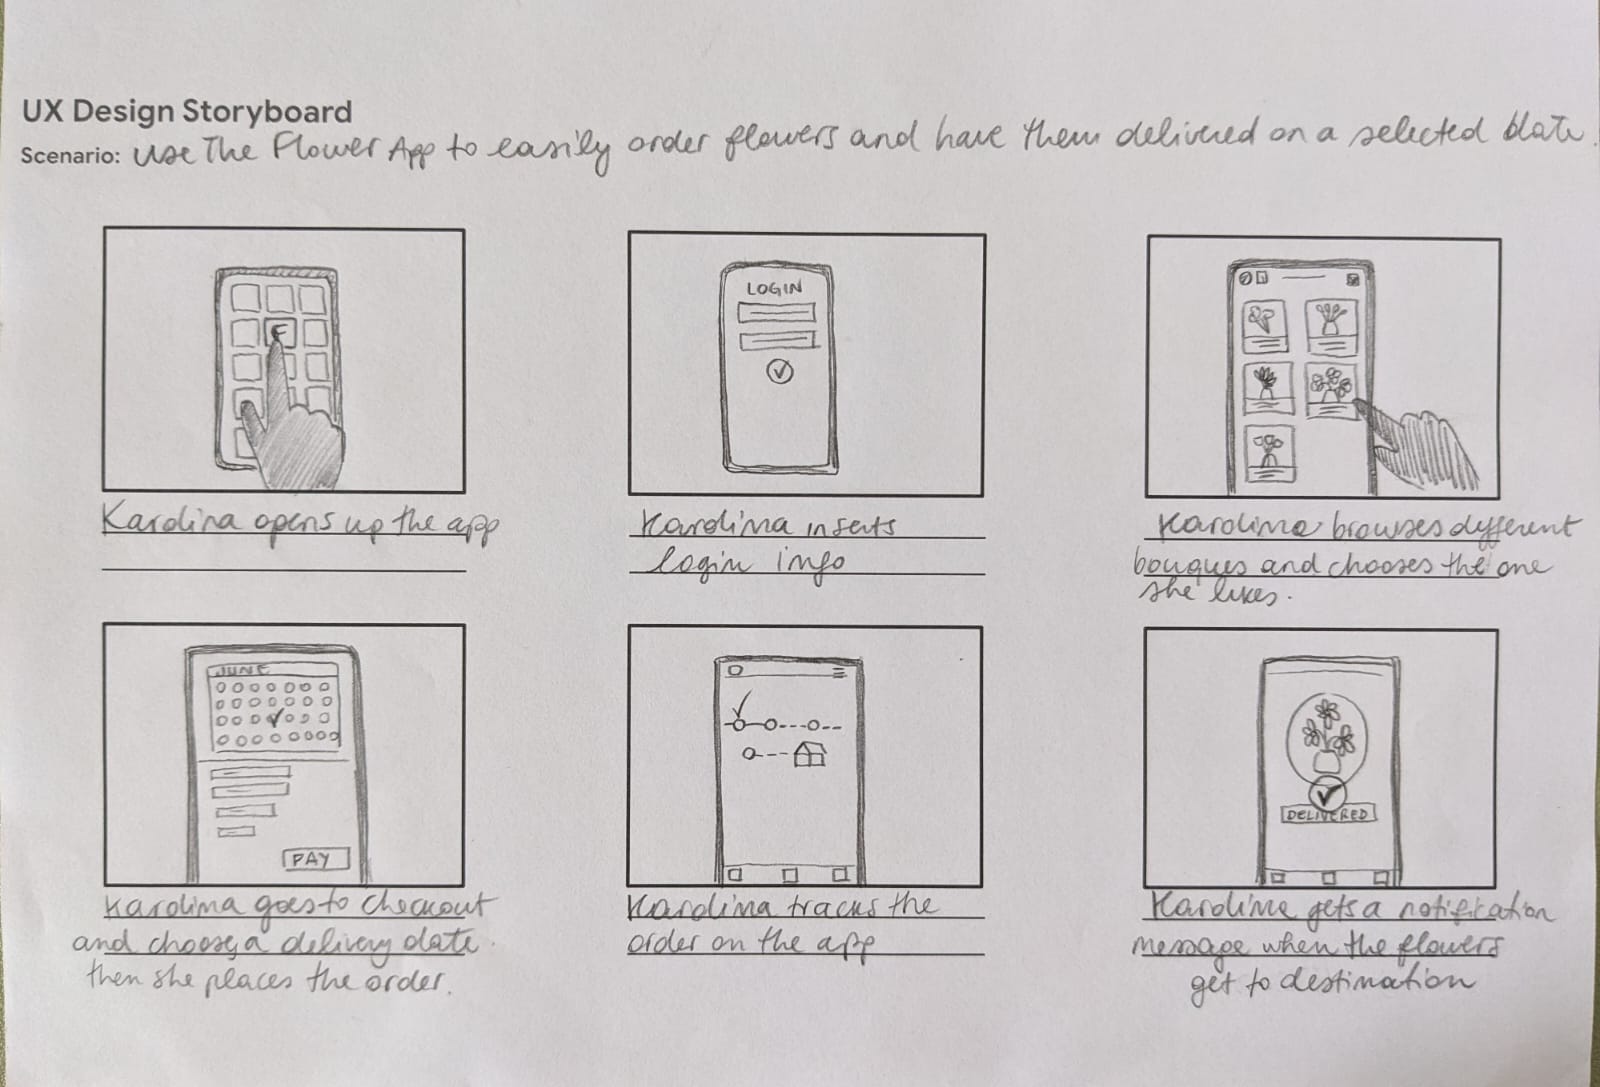 UX Design Storyboard
Scenario: Use The Flower App to easily order flowers and have them delivered on a selected date.
F
LOGIN
Karolina opens up the app
Karolina inserts
login info
Karolina browses different
bouques and chooses the one
she likes.
JUNE
PAY
DELIVERED
Karolina goes to checkout
and chooses a delivery date.
then she places the order.
Karolina tracks the
order on the app
Karolina gets a notification
message when the flowers
get to destination